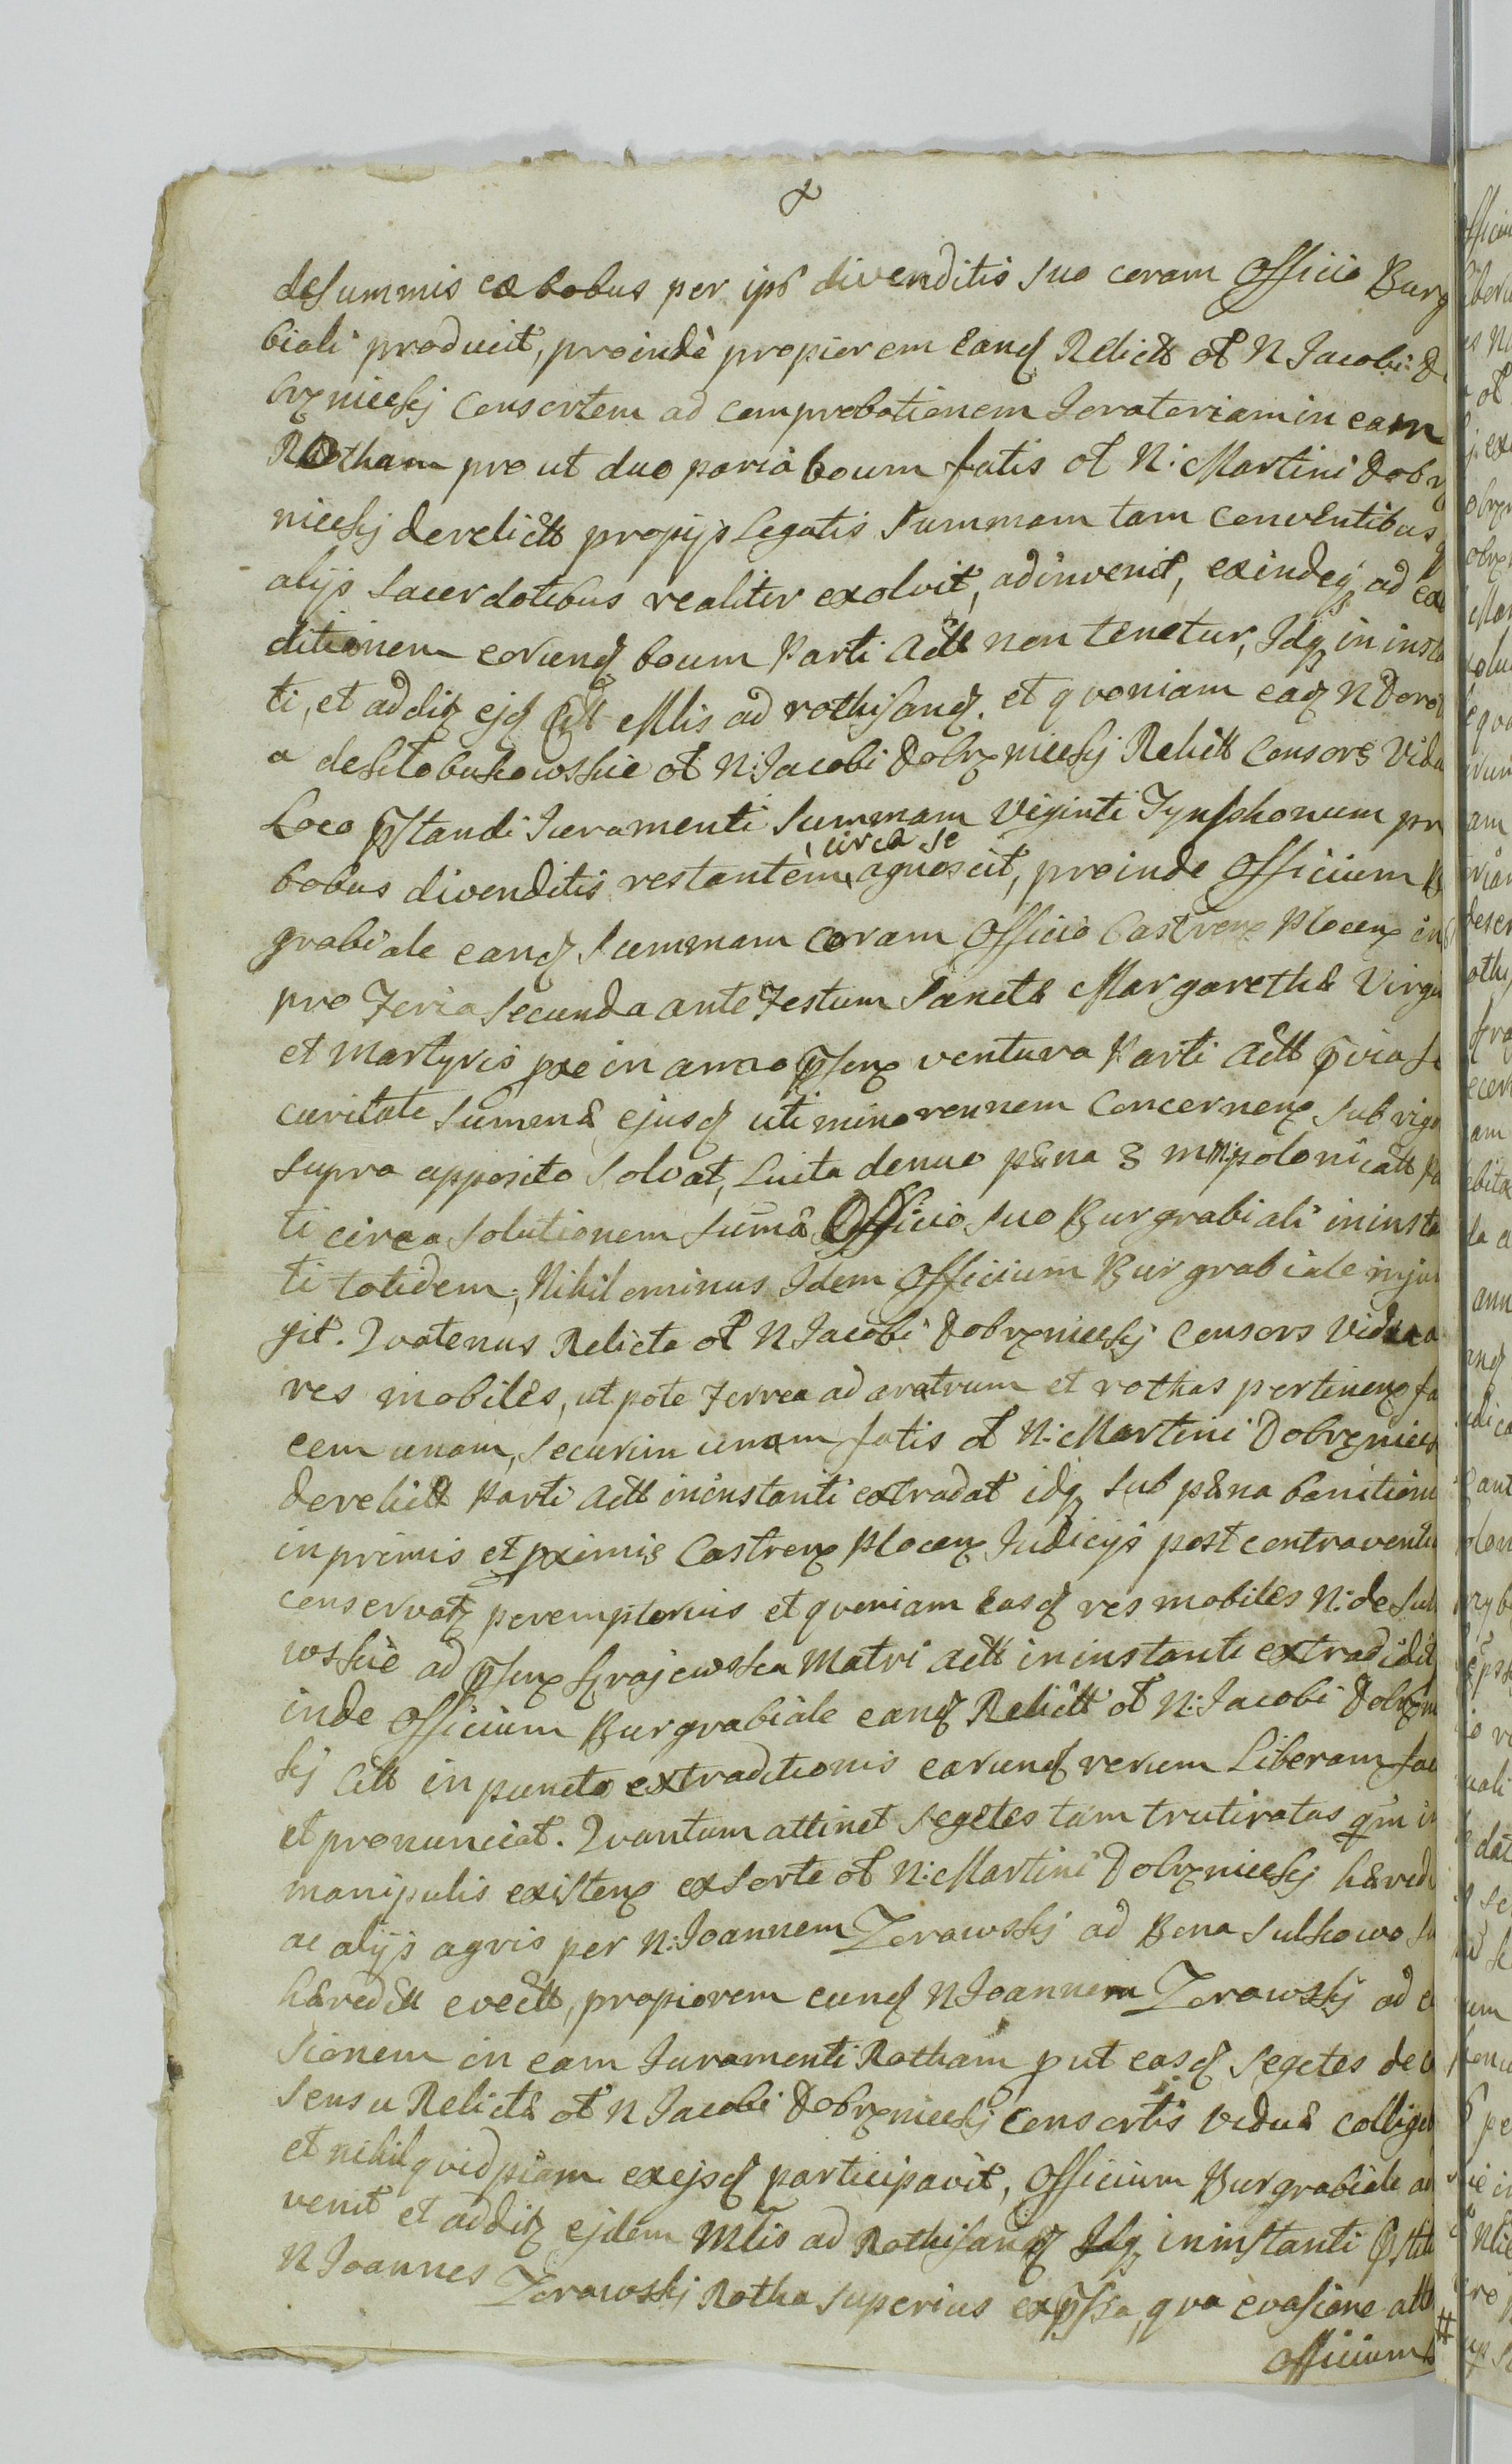 de summis ex bobus per ips divenditis suo coram Officio Burg
biali producit, proindè propiorem eanq Relictt ol N Jacobi D
brznicckj Consortem ad comprobationem Joratoriam in eam
Rotham pro ut duo paria boum fatis ol N: Martini Dobrz
nieckj derelictt propijs legatis Summam tam Conventibus q
alijs Sacerdotibus realiter exolvit, adinvenit, exindeq ad ex
ditionem eorunq boum Parti Actt non tenetur, Idq in insta
ti, et addiz ejq Mlis ad rothisanq. et qvoniam eaq N Doro
a de ol N: Jacobi Dobrznieckj Relictt Consors Vidu
Loco pstandi Juramenti Summam Viginti Tynphonum pr
circa se
bobus divenditis restantem, agnoscit, proinde Officium B
grabiale eanq Summam coram Officio Castrenz Plocenz in
pro Feria Secunda ante Festum Sanctæ Margarethæ Virgi
et Martyris pxe in anno psenz ventura Parti Actt pvia se
curitate Summæ ejusq uti minorennem Concernenz sub rigo
supra apposito Solvat, Luita denuo pæna 3 mm: polonicatt Pa
ti circa Solutionem Sumæ Officio suo Burgrabiali in insta
ti totidem, Nihilominus Idem Officium Burgrabiale injun
git. Qvatenus Relicta ol N Jacobi Dobrznieckj Consors Vidua
res mobiles, ut pote Ferrea ad aratrum et rothas pertinenz fa
cem unam, Securim unam fatis ol N: Martini Dobrzniec
derelictt Parti Actt in instanti extradat idq sub pæna banitioni
in primis et pximis Castrenz Plocenz Judicijs post contraventi
conservatz peremptorius et qvoniam easq res mobiles N: de Sul
wskie ad psenz Grajewska Matri Actt in instanti extradidit
inde Officium Burgrabiale eanq Relictt ol N: Jacobi Dobrzni
kj Citt in puncto extraditionis earunq rerum Liberam fac
et pronunciat. Qvantum attinet segetes tam trutiratas qm in
manipulis existenz ex Sorte ol N: Martini Dobrznieckj hæred
ac alijs agris per N: Joannem Zorawskj ad Bona Sulkowo Su
hæreditt evectt, propiorem eunq N Joannem Zorawskj ad e
sionem in eam Juramenti Rotham put easq segetes de
sensu Relictæ ol N Jacobi Dobrznieckj Consortis Viduæ collige
et nihil qvidpiam ex ejsq participavit, Officium Burgrabiale ad
venit et addiz ejdem Mtis ad Rothisanq Idq in instanti pstit
N Joannes Zorawskj Rotha superius expssa, qva evasione att
Officium B